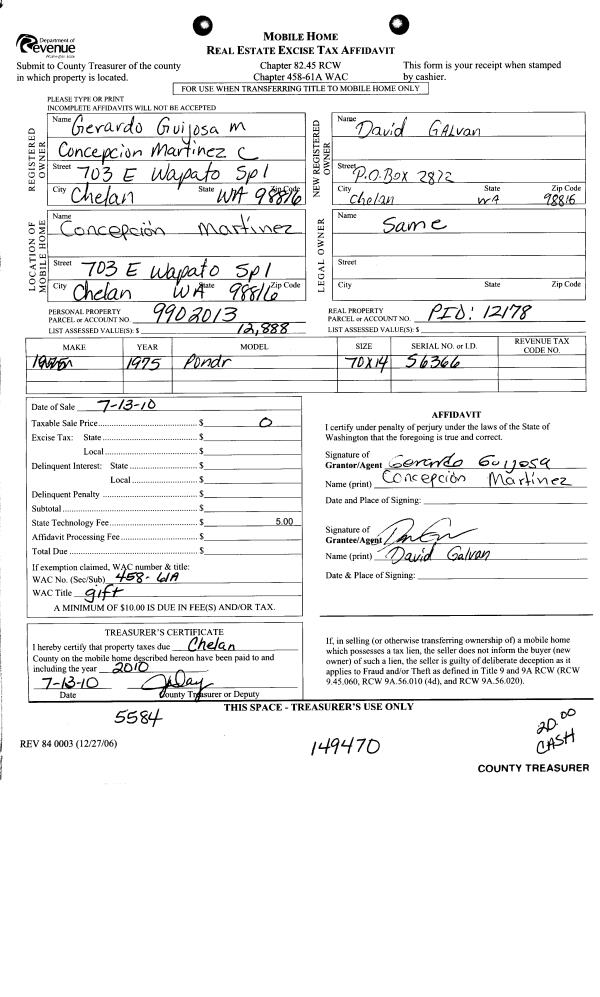 Department of
Revenue
Washington State
MOBILE HOME
REAL ESTATE EXCISE TAX AFFIDAVIT
Submit to County Treasurer of the county
in which property is located.
Chapter 82.45 RCW
Chapter 458-61A WAC
This form is your receipt when stamped
by cashier.
FOR USE WHEN TRANSFERRING TITLE TO MOBILE HOME ONLY
PLEASE TYPE OR PRINT
INCOMPLETE AFFIDAVITS WILL NOT BE ACCEPTED
REGISTERED OWNER
Name Gerardo Guijosa M
Concepcion Martinez C
Street 703 E Wapato Sp 1
City Chelan State WA 98816 Zip Code
NEW REGISTERED OWNER
Name David GALvan
Street P.O.BOX 2872
City Chelan State WA Zip Code 98816
LOCATION OF MOBILE HOME
Name Concepción Martinez
Street 703 E Wapato Sp 1
City Chelan WA State 98816 Zip Code
LEGAL OWNER
Name Same
Street
City State Zip Code
PERSONAL PROPERTY
PARCEL or ACCOUNT NO. 9902013
LIST ASSESSED VALUE(S): $ 12,888
REAL PROPERTY
PARCEL or ACCOUNT NO. PID: 12178
LIST ASSESSED VALUE(S): $
MAKE YEAR MODEL SIZE SERIAL NO. or I.D. REVENUE TAX CODE NO.
1975 Pondr 70X14 S6366
Date of Sale 7-13-10
Taxable Sale Price $ 0
Excise Tax: State $
Local $
Delinquent Interest: State $
Local $
Delinquent Penalty $
Subtotal $
State Technology Fee $ 5.00
Affidavit Processing Fee $
Total Due $
If exemption claimed, WAC number & title:
WAC No. (Sec/Sub) 458-61A
WAC Title gift
A MINIMUM OF $10.00 IS DUE IN FEE(S) AND/OR TAX.
AFFIDAVIT
I certify under penalty of perjury under the laws of the State of
Washington that the foregoing is true and correct.
Signature of
Grantor/Agent Gerardo Guijosa
Name (print) Concepción Martinez
Date and Place of Signing:
Signature of
Grantee/Agent
Name (print) David Galvan
Date & Place of Signing:
TREASURER'S CERTIFICATE
I hereby certify that property taxes due Chelan
County on the mobile home described hereon have been paid to and
including the year 2010
7-13-10
Date County Treasurer or Deputy
If, in selling (or otherwise transferring ownership of) a mobile home
which possesses a tax lien, the seller does not inform the buyer (new
owner) of such a lien, the seller is guilty of deliberate deception as it
applies to Fraud and/or Theft as defined in Title 9 and 9A RCW (RCW
9.45.060, RCW 9A.56.010 (4d), and RCW 9A.56.020).
THIS SPACE - TREASURER'S USE ONLY
5584
20.00
CASH
REV 84 0003 (12/27/06)
149470
COUNTY TREASURER